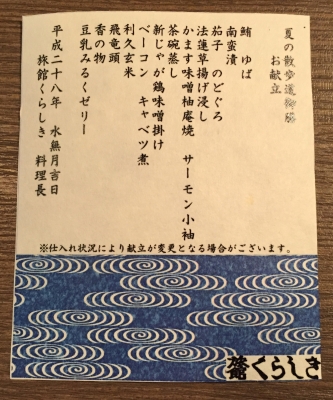 夏の散歩道御膳
お献立
鮪 ゆば
南蛮漬
茄子 のどぐろ
法蓮草揚げ浸し
かます味噌柚庵焼 サーモン小袖
茶碗蒸し
新じゃが鶏味噌掛け
ベーコン キャベツ煮
利久玄米
飛竜頭
香の物
豆乳みるくゼリー
平成二十八年 水無月吉日
旅館くらしき 料理長
※仕入れ状況により献立が変更となる場合がございます。
くらしき